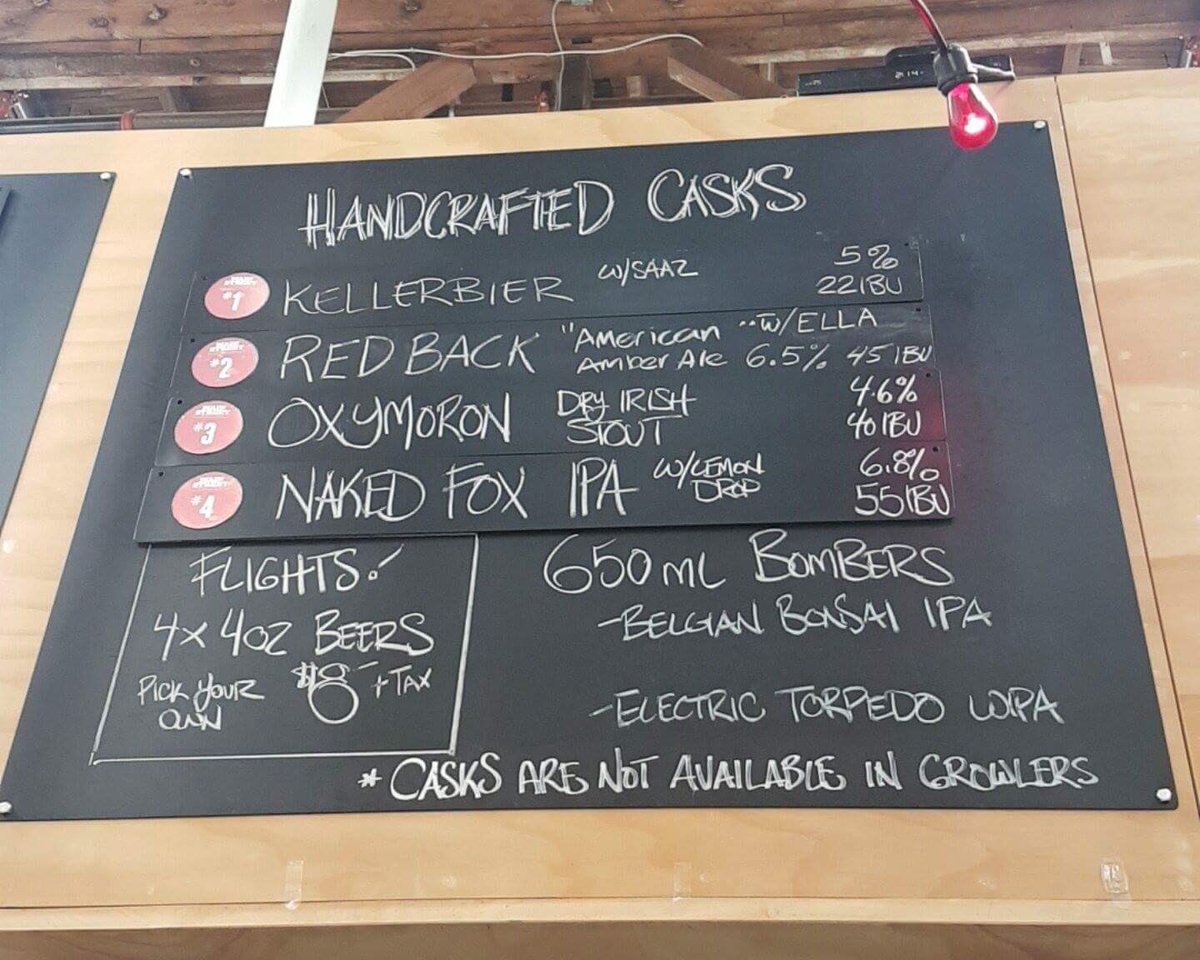 HANDCRAFTED CASKS
#1 KELLERBIER W/SAAZ 5%
22 IBU
#2 RED BACK "American "W/ELLA
Amber Ale 6.5% 45 IBU
#3 OXYMORON DRY IRISH 4.6%
STOUT 40 IBU
#4 NAKED FOX IPA W/LEMON 6.8%
DROP 55 IBU
FLIGHTS!
4x 4OZ BEERS
PICK YOUR $8 + TAX
OWN
650 ML BOMBERS
- BELGIAN BONSAI IPA
- ELECTRIC TORPEDO WIPA
* CASKS ARE NOT AVAILABLE IN GROWLERS